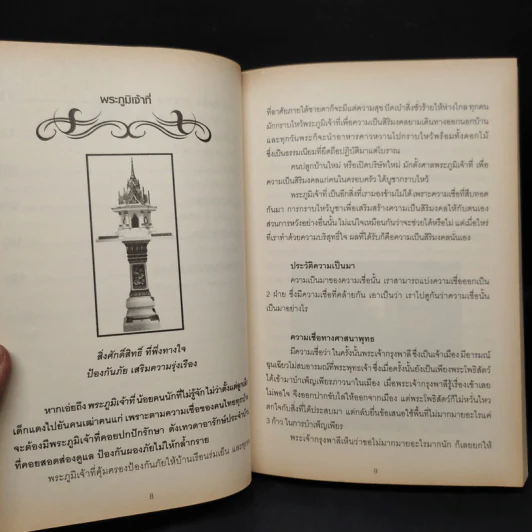 พระภูมิเจ้าที่
สิ่งศักดิ์สิทธิ์ ที่พึ่งทางใจ
ป้องกันภัย เสริมความรุ่งเรือง
หากเอ่ยถึง พระภูมิเจ้าที่ น้อยคนนักที่ไม่รู้จัก ไม่ว่าตั้งแต่ลูกเล็ก
เด็กแดงไปยันคนเฒ่าคนแก่ เพราะตามความเชื่อของคนไทยทุกบ้าน
จะต้องมีพระภูมิเจ้าที่คอยปกปักรักษา ดังเทวดาอารักษ์ประจำบ้าน
ที่คอยสอดส่องดูแล ป้องกันผองภัยไม่ให้กล้ำกราย
พระภูมิเจ้าที่คุ้มครองป้องกันภัยให้บ้านเรือนร่มเย็น และ
8
ที่อาศัยภายใต้ชายคาก็จะมีแต่ความสุข ปัดเป่าสิ่งชั่วร้ายให้ห่างไกล ทุกคน
มักกราบไหว้พระภูมิเจ้าที่เพื่อความเป็นสิริมงคลยามเดินทางออกนอกบ้าน
และทุกวันพระก็จะนำอาหารคาวหวานไปกราบไหว้พร้อมทั้งดอกไม้
ซึ่งเป็นธรรมเนียมที่ยึดถือปฏิบัติมาแต่โบราณ
คนปลูกบ้านใหม่ หรือเปิดบริษัทใหม่ มักตั้งศาลพระภูมิเจ้าที่ เพื่อ
ความเป็นสิริมงคลแก่คนในครอบครัว ได้บูชากราบไหว้
พระภูมิเจ้าที่ เป็นอีกสิ่งที่เรามองข้ามไม่ได้ เพราะความเชื่อที่สืบทอด
กันมา การกราบไหว้บูชาเพื่อเสริมสร้างความเป็นสิริมงคลให้กับตนเอง
ส่วนการหวังอย่างอื่นนั้น ไม่แน่ใจเหมือนกันว่าจะช่วยได้หรือไม่ แต่เมื่อไหร่
ที่เราทำด้วยความบริสุทธิ์ใจ ผลที่ได้รับก็คือความเป็นสิริมงคลนั่นเอง
ประวัติความเป็นมา
ความเป็นมาของความเชื่อนั้น เราสามารถแบ่งความเชื่อออกเป็น
2 ฝ่าย ซึ่งมีความเชื่อที่คล้ายกัน เอาเป็นว่า เราไปดูกันว่าความเชื่อนั้น
เป็นมาอย่างไร
ความเชื่อทางศาสนาพุทธ
มีความเชื่อว่า ในครั้งนั้นพระเจ้ากรุงพาลี ซึ่งเป็นเจ้าเมือง มีอารมณ์
ขุ่นเคียวไม่สบอารมณ์ที่พระพุทธเจ้า ซึ่งเมื่อครั้งนั้นยังเป็นเพียงพระโพธิสัตว์
ได้เข้ามาบำเพ็ญเพียรภาวนาในเมือง เมื่อพระเจ้ากรุงพาลีรู้เรื่องเข้าเลย
ไม่พอใจ จึงออกปากขับไล่ให้ออกจากเมือง แต่พระโพธิสัตว์ก็ไม่หวั่นไหว
ตกใจกับสิ่งที่ได้ประสบมา แต่กลับยื่นข้อเสนอใช้พื้นที่ไม่มากมายอะไรแค่
3 ก้าว ในการบำเพ็ญเพียร
พระเจ้ากรุงพาลีเห็นว่าขอไม่มากมายอะไรมากนัก ก็เลยยกให้
9